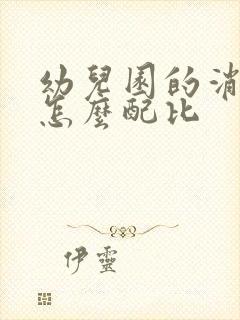 幼兒園的消
怎麼配比
伊靈